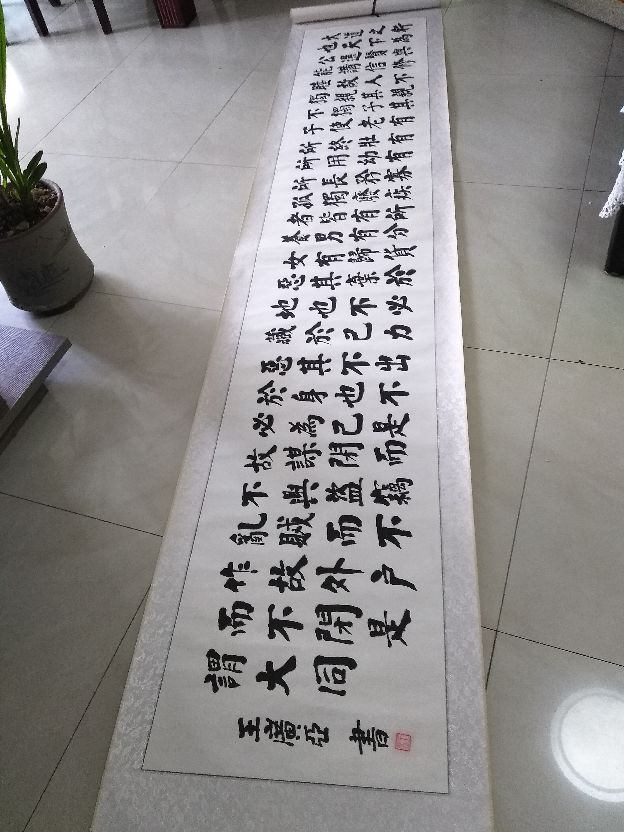 大道之行
也天下為
公選賢與
能講信修
睦故人不
獨親其親
不獨子其
子使老有
所終壯有
所用幼有
所長矜寡
孤獨廢疾
者皆有所
養男有分
女有歸貨
惡其棄於
地也不必
藏於己力
惡其不出
於身也不
必為己是
故謀閉而
不興盜竊
亂賊而不
作故外户
而不閉是
謂大同
王廣亞 書